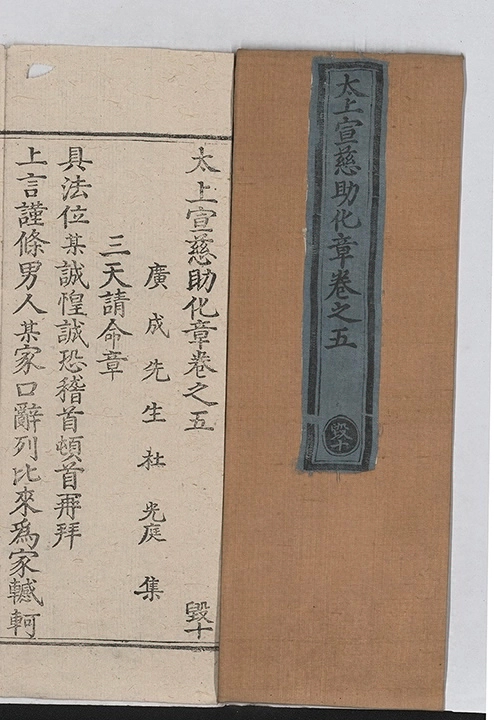 太上宣慈助化章卷之五
毀十
太上宣慈助化章卷之五 毀十
廣成先生杜光庭集
三天請命章
具法位某誠惶誠恐稽首頓首再拜
上言謹條男人某家口辭列比來爲家轗軻